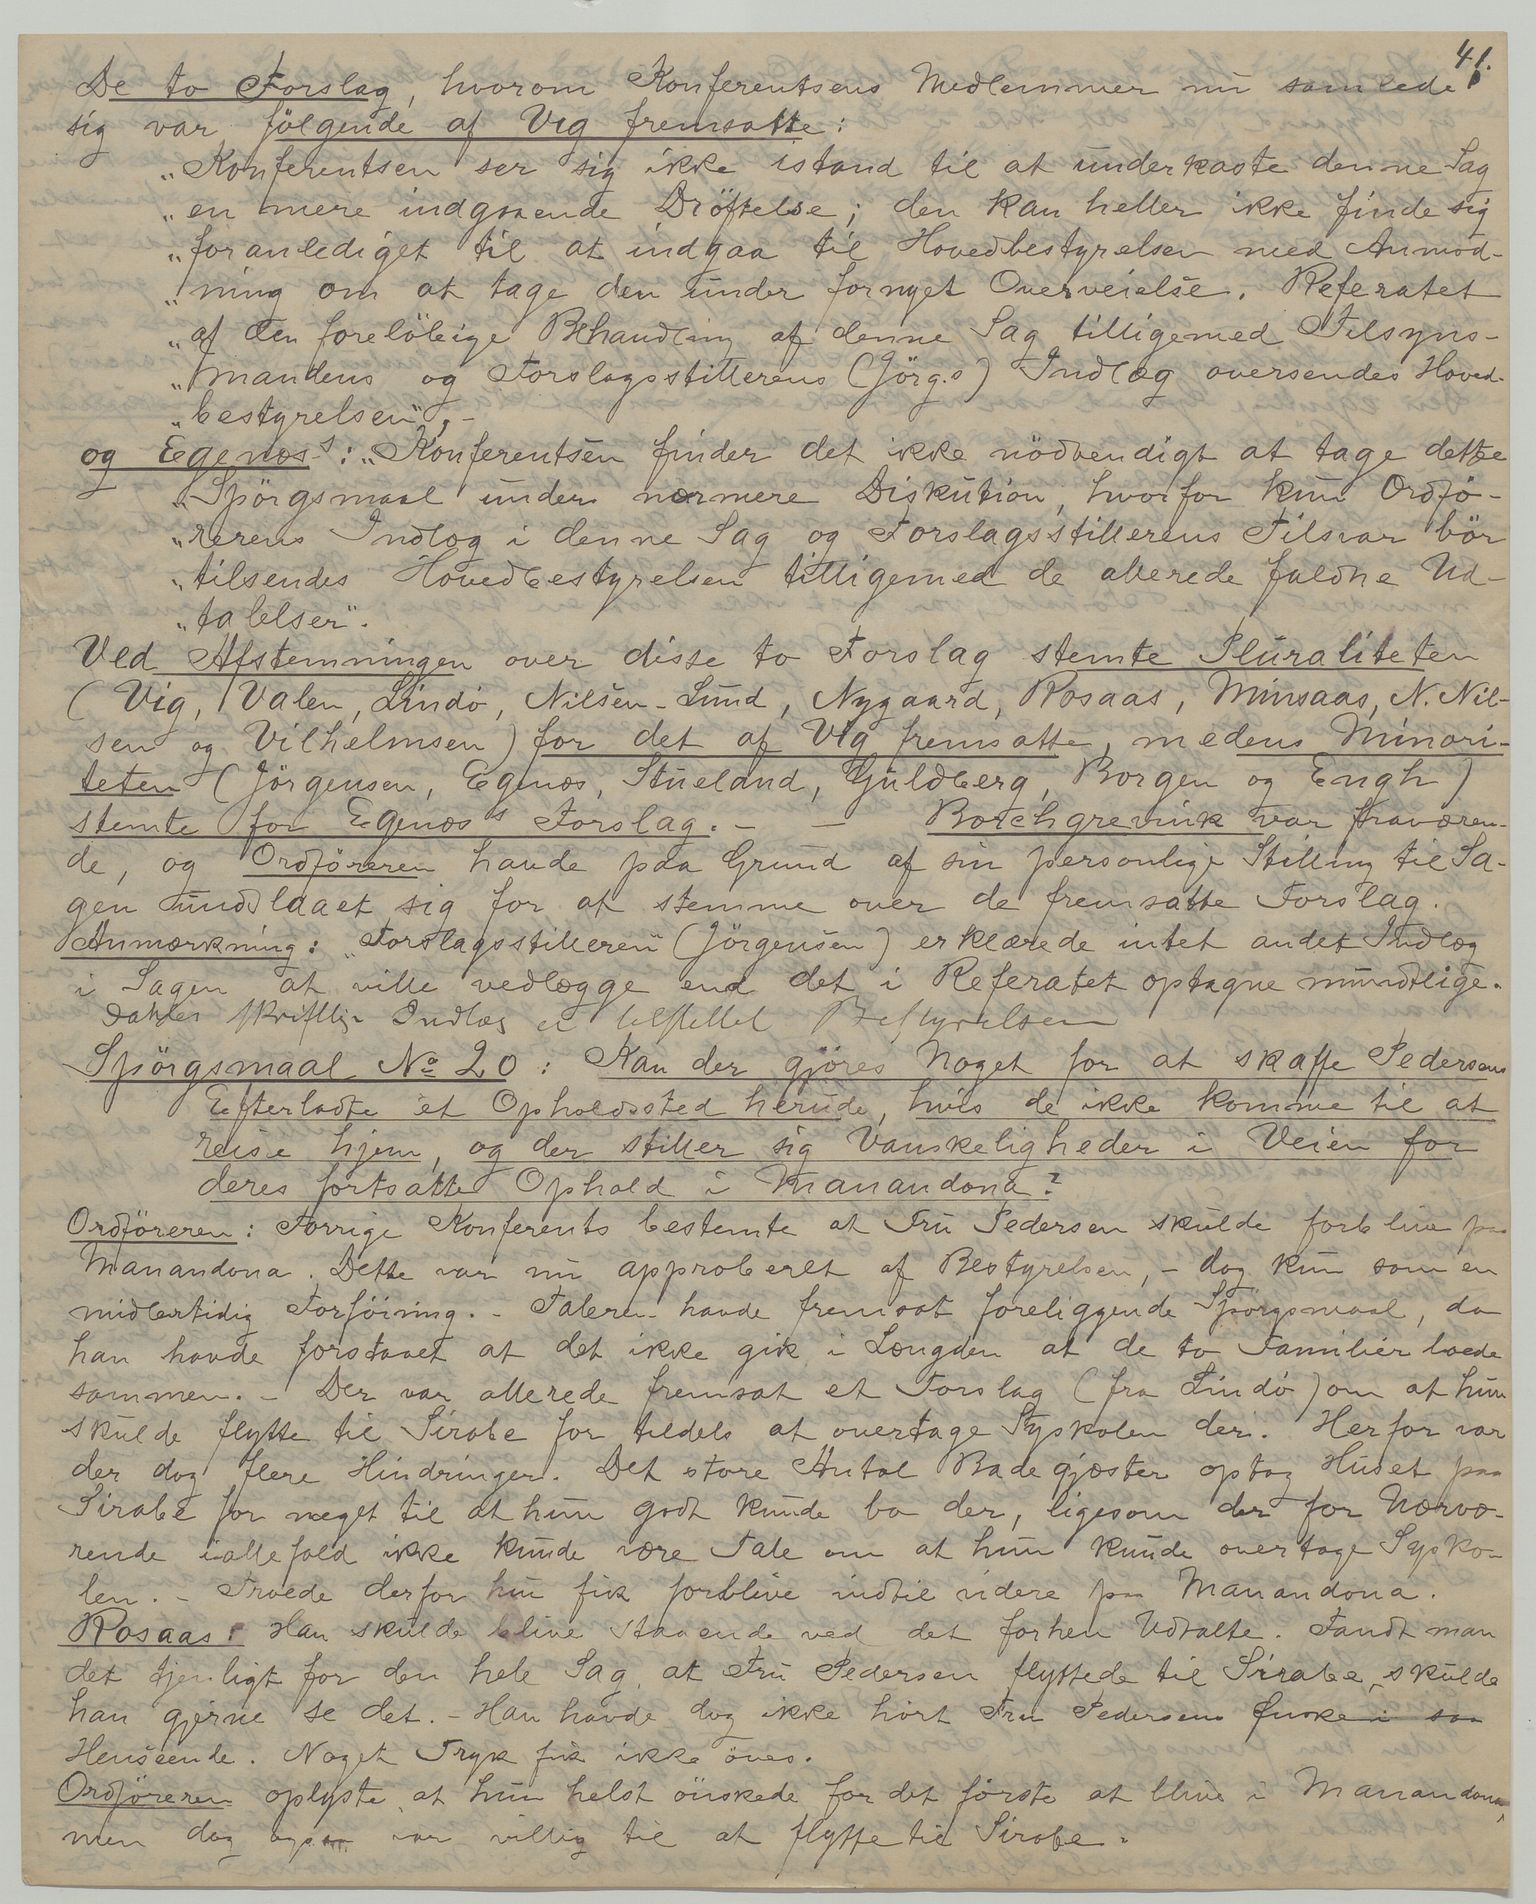 41.
De to Forslag, hvorom Konferentsens Medlemmer nu samlede
sig var følgende af Vig fremsatte:
„Konferentsen ser sig ikke istand til at underkaste denne Sag
„en mere indgaaende Dröftelse; den kan heller ikke finde sig
„foranlediget til at indgaa til Hovedbestyrelsen med Anmod-
„ning om at tage den under fornyet Overveielse. Referatet
„af den foreløbige Behandling af denne Sag tilligemed Tilsyns-
„mandens og Forslagsstillerens (Jörg.s) Indlæg oversendes Hoved-
„bestyrelsen", -
og Egenæs's: „Konferentsen finder det ikke nödvendigt at tage dette
„Spörgsmaal under nærmere Diskution, hvorfor kun Ordfö-
„rerens Indlæg i denne Sag og Forslagsstillerens Tilsvar bör
„tilsendes Hovedbestyrelsen tilligemed de allerede faldne Ud-
„talelser".
Ved Afstemningen over disse to Forslag stemte Pluraliteten
(Vig, Valen, Lindö, Nilsen-Lund, Nygaard, Rosaas, Minsaas, N. Nil-
sen og Vilhelmsen) for det af Vig fremsatte, medens Minori-
teten (Jörgensen, Egenæs, Stueland, Guldberg, Borgen og Engh)
stemte for Egenæs's Forslag. - - Borchgrevink var fraværen-
de, og Ordföreren havde paa Grund af sin personlige Stilling til Sa-
gen undslaaet sig for at stemme over de fremsatte Forslag.
Anmærkning: „Forslagsstilleren" (Jörgensen) erklærede intet andet Indlæg
i Sagen at ville vedlægge end det i Referatet optagne mundtlige.
skriftlige Indlæg er tilstillet Bestyrelsen
Spörgsmaal No 20: Kan der gjöres Noget for at skaffe Pedersens
Efterladte et Opholdssted herude, hvis de ikke komme til at
reise hjem, og der stiller sig Vanskeligheder i Veien for
deres fortsatte Ophold i Manandona?
Ordföreren: Forrige Konferents bestemte at Fru Pedersen skulde forblive paa
Manandona. Dette var nu approberet af Bestyrelsen, - dog kun som en
midlertidig Forföining. - Taleren havde fremsat foreliggende Spörgsmaal, da
han havde forstaaet at det ikke gik i Længden at de to Familier boede
sammen. - Der var allerede fremsat et Forslag (fra Lindö) om at hun
skulde flytte til Sirabe for tildels at overtage Syskolen der. Herfor var
der dog flere Hindringer. Det store Antal Badegjæster optog Huset paa
Sirabe for meget til at hun godt kunde bo der, ligesom der for Nærvæ-
rende iallefald ikke kunde være Tale om at hun kunde overtage Sysko-
len. - Troede derfor hun fik forblive indtil videre paa Manandona.
Rosaas: Han skulde blive staaende ved det forhen Udtalte. Fandt man
det tjenligt for den hele Sag, at Fru Pedersen flyttede til Sirabe, skulde
han gjerne se det. - Han havde dog ikke hört Fru Pedersens Önske i saa
Henseende. Noget Tryk fik ikke öves.
Ordföreren oplyste, at hun helst önskede for det förste at blive i Manandona,
men dog ogsaa var villig til at flytte til Sirabe.